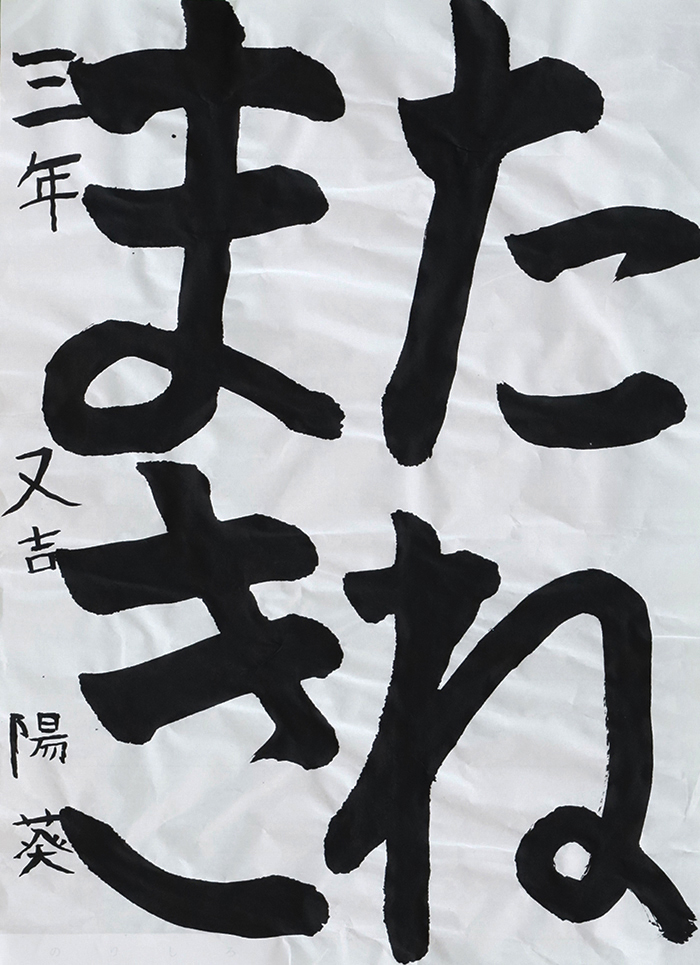 たね
まき
三年 又吉 陽葵